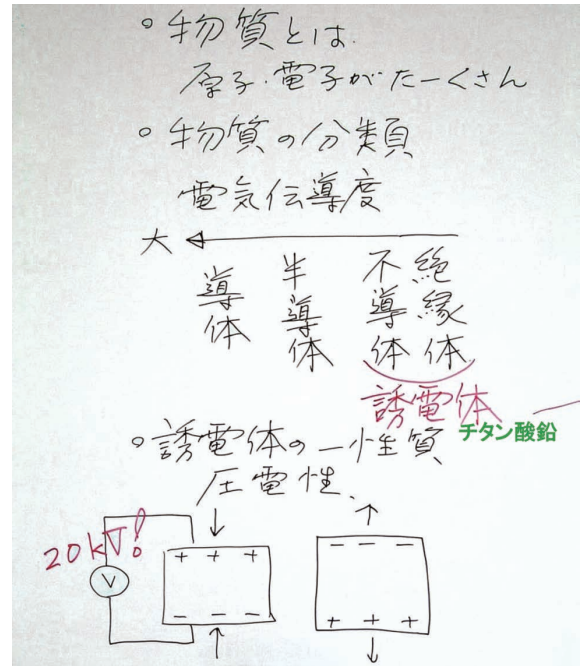 ○物質とは
原子・電子がたーくさん
○物質の分類
電気伝導度
大
導体
半導体
不導体
絶縁体
誘電体
チタン酸鉛
○誘電体の一性質
圧電性
20kV!
V
+ + +
− − −
− − −
+ + +